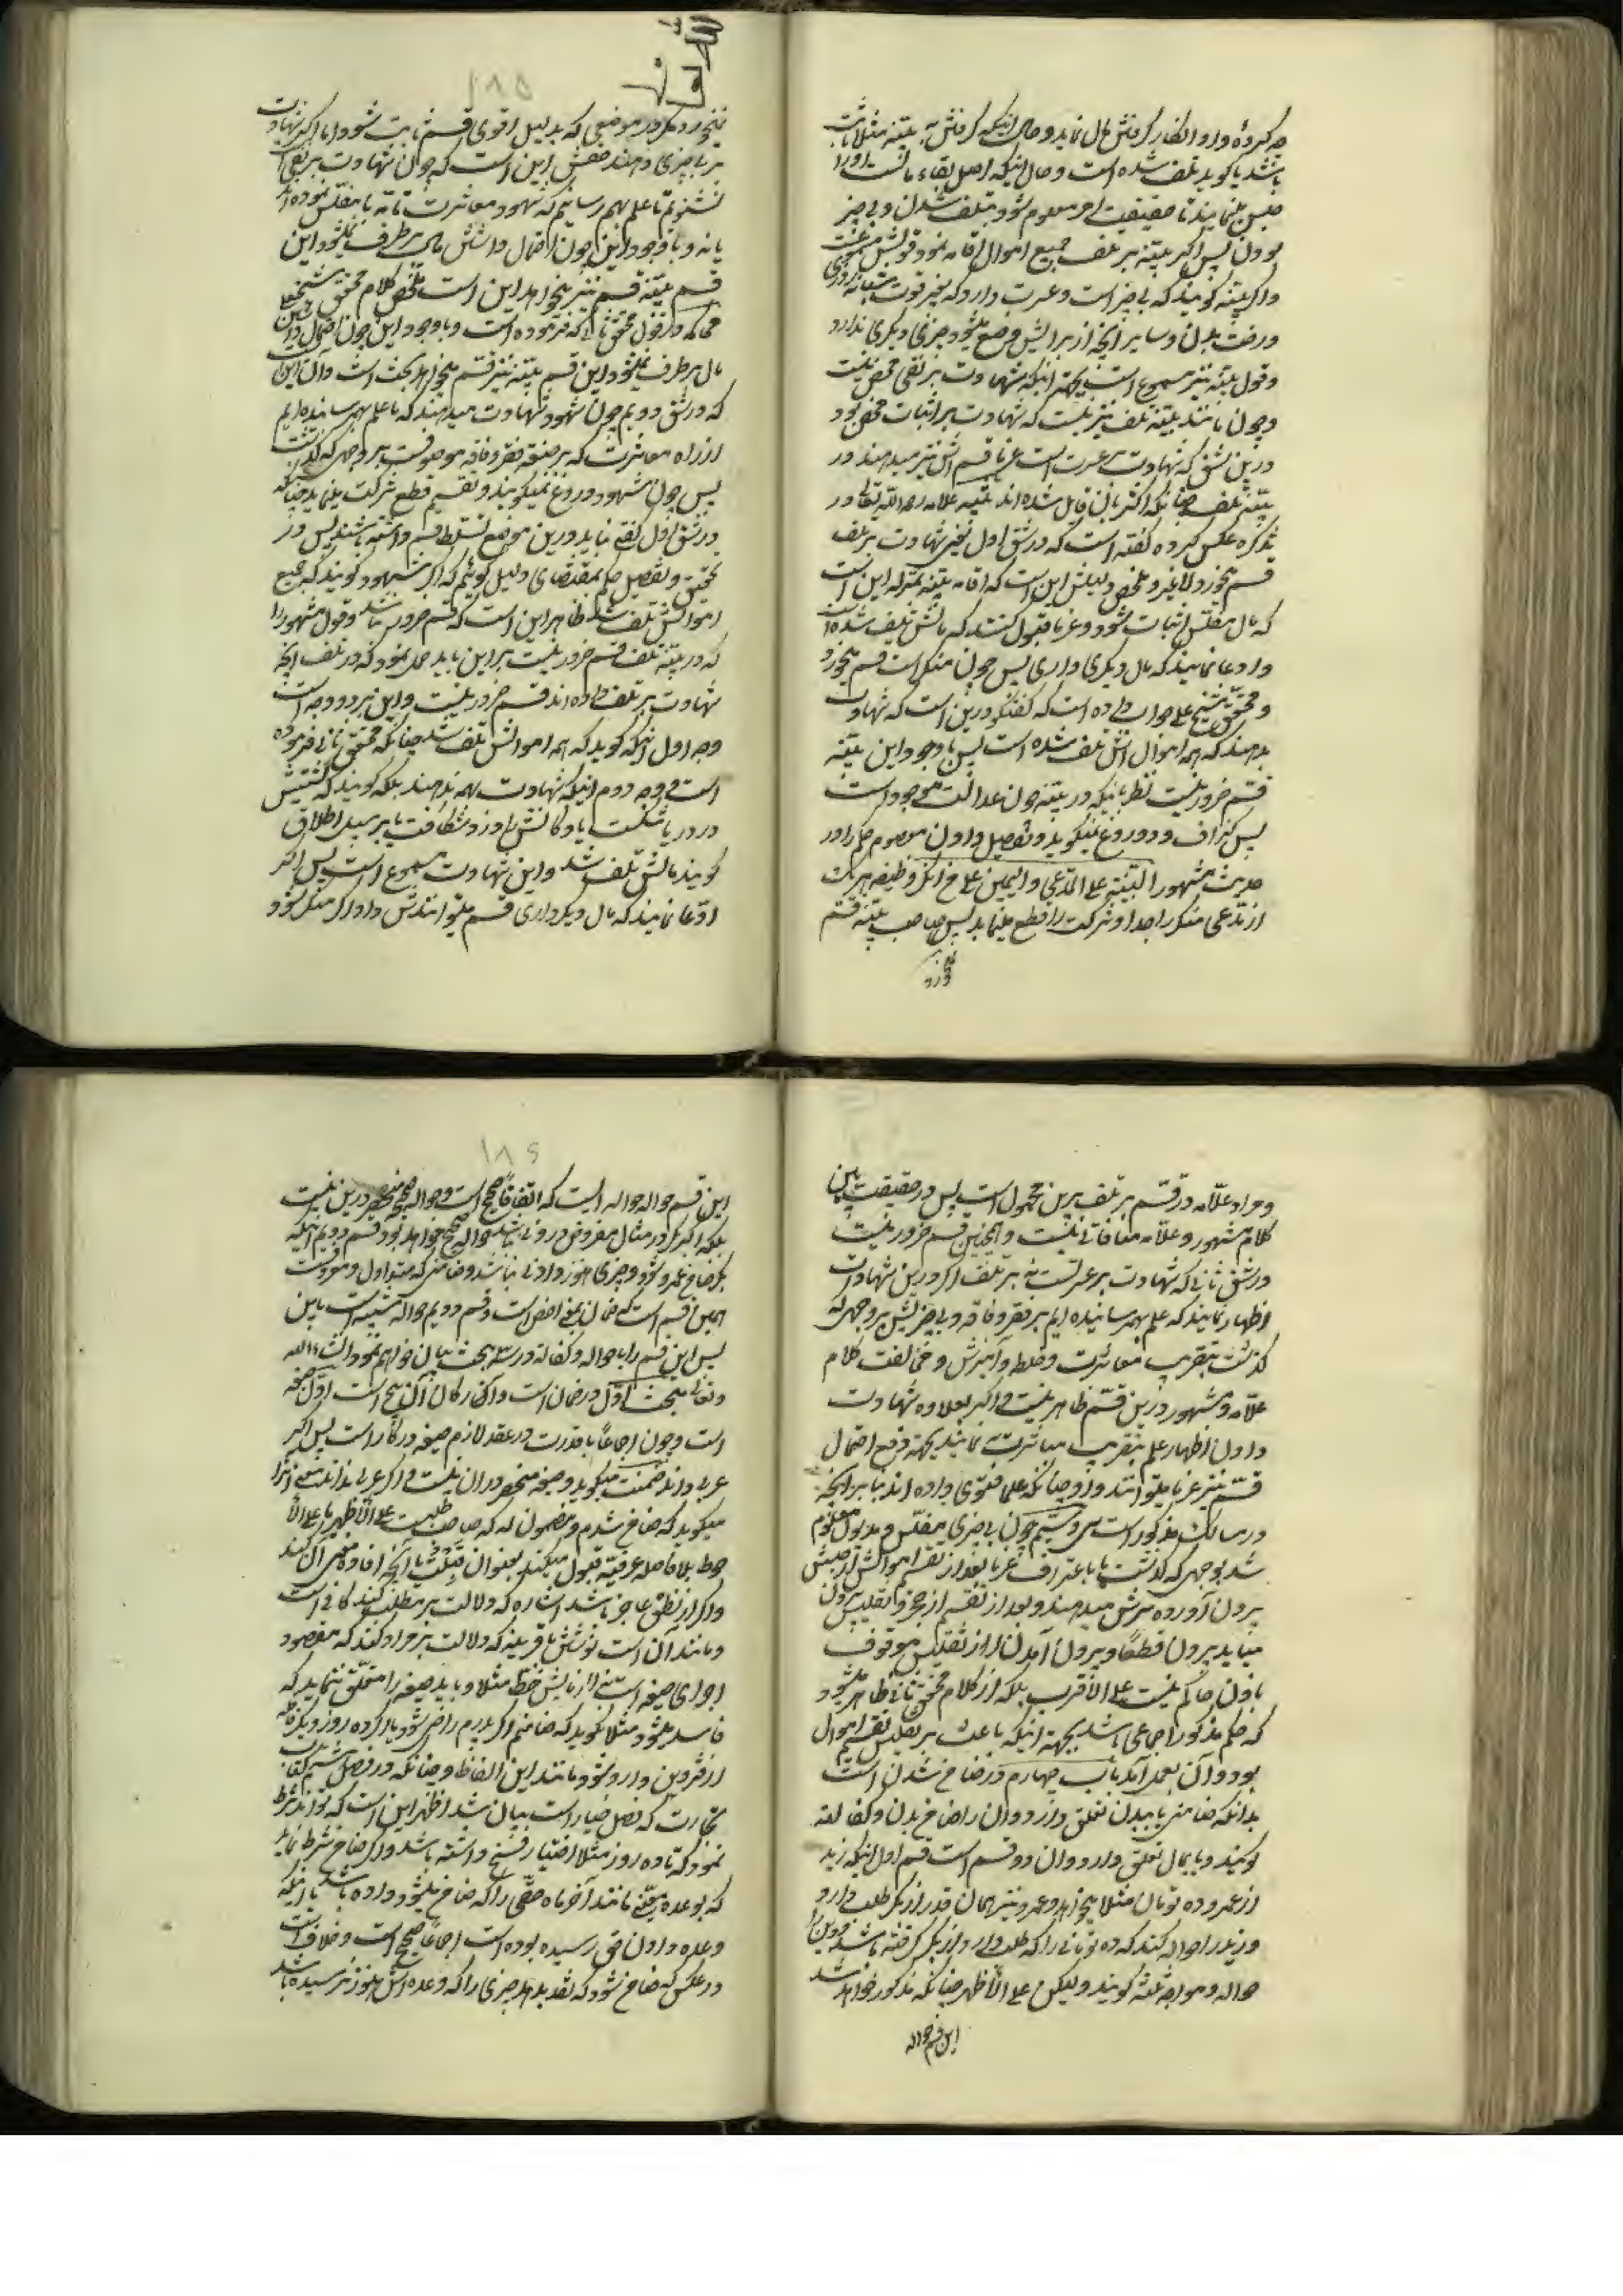 چه کرده و او انکار گرفتن مال نماید و حال آنکه گرفتنش به بینه مثلا ثابت
باشد یا گوید تلف شده است و حال آنکه اصل بقاء مالست او را
حبس مینمایند تا حقیقت امر معلوم شود بتلف شدن و بی چیز
بودن پس اگر بینه بر تلف جمیع اموال اقامه نمود قولش
و اگر بینه گویند که بی چیز است و عسرت دارد که بغیر قوت
و رخت بدن و سایر آنچه از برایش وضع میشود چیزی دیگری ندارد
و قول بینه نیز مسموع است بجهة اینکه شهادت بر نفی محض نیست
و چون مانند بینه تلف نیز نیست که شهادت بر اثبات محض بود
درین شق که شهادت بر عسرت است غرما قسم اش نیز میدهند و در
بینه تلف چنانکه اکثر بآن قایل شده اند بقیه علامه رحمه الله تعالی در
تذکره عکس کرده گفته است که در شق اول یعنی شهادت بر تلف
قسم میخورد لا غیر و ملخص دلیلش این است که اقامه بینه بمنزله این است
که مال مفلس اثبات شود و غرما قبول کنند که مالش تلف شده است
و ادعا نمایند که مال دیگری داری پس چون منکر است قسم میخورد
و محقق شیخ علی جواب داده است که گفتگو درین است که شهادت
بدهند که همه اموال اش تلف شده است پس با وجود این بینه
قسم ضرور نیست نظر باینکه در بینه چون عدالت موجود است
پس گزاف و دروغ نمیگوید و تفصیل دادن معصوم حکم را در
حدیث مشهور البینة علی المدعی و الیمین علی من انکر وظیفه هر یک
از مدعی و منکر را جدا و شرکت را قطع مینماید پس صاحب بینه قسم
نمیخورد
نمیخورد مگر در موضعی که بدلیل اقوی قسم ثابت شود و اما اگر شهادت
بر بی چیزی دهند مقتضی این است که چون شهادت بر نفی
نشنویم تا علم بهم رسانیم که شهود معاشرت تامه با مفلس نموده اند
یا نه و با وجود این چون احتمال داشتن مال بر طرف نمیشود این
قسم بینه قسم نیز میخواهد این است ملخص کلام محقق شیخ علی
محاکمه در قول محقق ثانی که فرموده است و با وجود این چون احتمال داشتن
مال بر طرف نمیشود این قسم بینه نیز قسم میخواهد بحث است و آن این است
که در شق دویم چون شهود شهادت میدهند که ما علم بهم رسانیده ایم
از راه معاشرت که بر صفت فقر و فاقه موصوفست بر وجهی که گذشت
پس چون شهود دروغ نمیگویند و تقسیم قطع شرکت مینماید چنانکه
در شق اول گفتی نباید درین موضع تسلط قسم داشته باشند پس در
تحقیق و تفصیل حکم بمقتضای دلیل گوئیم که اگر شهود گویند که جمیع
اموالش تلف شد ظاهر این است که قسم ضرور نباشد و قول مشهور را
که در بینه تلف قسم ضرور نیست بر این باید حمل نمود که در تلف آنچه
شهادت بر تلف داده اند قسم ضرور نیست و این بر دو وجه است
وجه اول اینکه گوید که همه اموالش تلف شد چنانکه محقق ثانی فرموده
است و وجه دوم اینکه شهادت بهمه ندهند بلکه گویند که کشتیش
در دریا شکست یا دکانش را دزد شکافت یا بر سبیل اطلاق
گویند مالش تلف شد و این شهادت مسموع است پس اگر
ادعا نمایند که مال دیگر داری قسم میتوانندش داد اگر منکر شود
و مراد علامه در قسم بر تلف برین محمول است پس در حقیقت بین
کلام مشهور و علامه منافاتی نیست و همچنین قسم ضرور نیست
در شق ثانی که شهادت بر عسرتست نه بر تلف اگر درین شهادت
اظهار نمایند که علم بهم رسانیده ایم بر فقر و فاقه و بی چیزیش بر وجهی که
گذشت بتقریب معاشرت و خلط و آمیزش و مخالفت کلام
علامه و مشهور درین قسم ظاهر نیست و اگر بعلاوه شهادت
دادن اظهار علم بتقریب معاشرت نه نمایند بجهة دفع احتمال
قسم نیز غرما میتوانند داد چنانکه علما فتوی داده اند بنا بر آنچه
در مسالک مذکور است سی و سیم چون بی چیزی مفلس و مدیون معلوم
شد بوجهی که گذشت یا باعتراف غرما بعد از تقسیم اموالش از حبس
بیرون آورده سرش میدهند و بعد از تقسیم از حجر و تفلیس بیرون
میآید بیرون قطعا و بیرون آمدن از تفلیس موقوف
باذن حاکم نیست علی الاقرب بلکه از کلام محقق ثانی ظاهر میشود
که حکم مذکور اجماعی باشد بجهة اینکه باعث بر تفلیس تقسیم اموال
بود و آن بعمل آمد باب چهارم در ضامن شدن است
بدانکه ضامنی یا ببدن تعلق دارد و آن را ضامن بدن و کفالة
گویند و یا بمال تعلق دارد و آن دو قسم است قسم اول اینکه زید
از عمرو ده تومان مثلا میخواهد و عمرو نیز همان قدر از بکر طلب دارد
و زید را حواله کند که ده تومانی را که طلب دارد از بکر گرفته باشد و این را
حواله و مواجه ثلثه گویند و لیکن علی الاظهر چنانکه مذکور خواهد شد
این قسم حواله
این قسم حواله حواله ایست که اتفاقا صحیح است و حواله صحیحه منحصر درین نیست
بلکه اگر بکر در مثال مفروض مدیون نباشد حواله صحیح خواهد بود و قسم دویم اینکه
بکر ضامن عمرو شود و چیزی هنوز او را نباشد و ضامنی که متداول و معروفست
همین قسم است که ضمان بمعنی اخص است و قسم دویم حواله شبیه است باین
پس این قسم را با حواله و کفالة در سه بحث بیان خواهیم نمود انشاء الله
تعالی مبحث اول در ضمان است و ارکان آن پنج است اول صیغه
است و چون اجماعا با قدرت در عقد لازم صیغه در کار است پس اگر
عربی داند ضمنت میگوید و صیغه منحصر در آن نیست و اگر عربی نداند بمعنی آنرا
میگوید که ضامن شدم و مضمون له که صاحب طلبست علی الاظهر یا علی الا
حوط بلا فاصله عرفیه قبول میکند بعنوان قبلت یا آنچه افاده معنی آن کند
و اگر از نطق عاجز باشد اشاره که دلالت بر مطلب کند کافی است
و مانند آن است نوشتن با قرینه که دلالت بر مراد کند که مقصود
اجرای صیغه است نه آزمایش خط مثلا و باید صیغه را معلق ننماید که
فاسد میشود مثلا نگوید که ضامنم اگر پدرم راضی شود یا اگر ده روز دیگر قافله
از قزوین وارد شود و مانند این الفاظ و چنانکه در فصل ششم کتاب
تجارت که فصل خیار است بیان شد اظهر این است که تواند شرط
نمود که تا ده روز مثلا اختیار فسخ داشته باشد و اگر ضامن شرط نماید
که بوعده معینی مانند آخر ماه حقی را که ضامن میشود داده باشد با اینکه
وعده دادن حق رسیده بوده است اجماعا صحیح است و خلاف است
در عکس که ضامن شود که نقد بدهد چیزی را که وعده اش هنوز نرسیده باشد
۱۸۵
۱۸۶